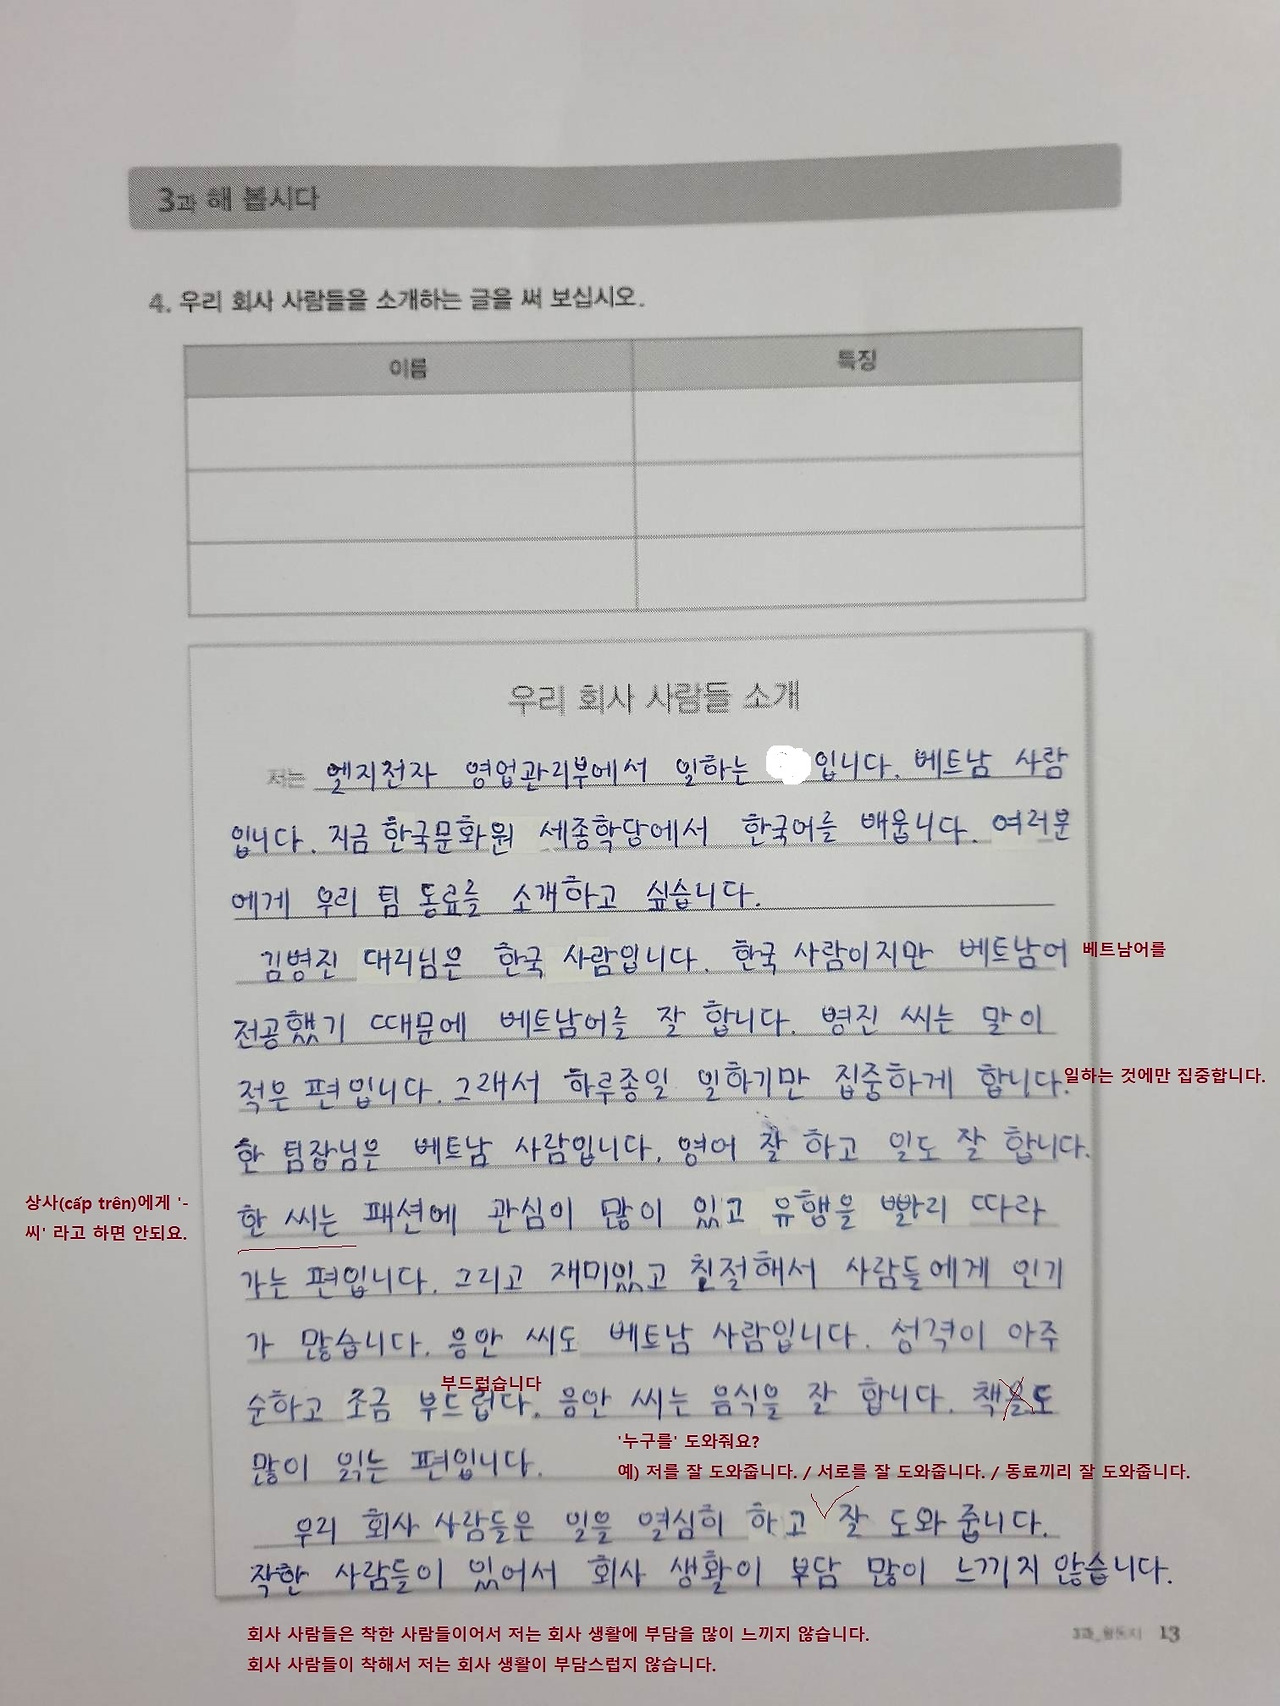 3과 해 봅시다
4. 우리 회사 사람들을 소개하는 글을 써 보십시오.
이름 특징
우리 회사 사람들 소개
저는 엘지전자 영업관리부에서 일하는 입니다. 베트남 사람
입니다. 지금 한국문화원 세종학당에서 한국어를 배웁니다. 여러분
에게 우리 팀 동료를 소개하고 싶습니다.
김병진 대리님은 한국 사람입니다. 한국 사람이지만 베트남어 베트남어를
전공했기 때문에 베트남어를 잘 합니다. 병진 씨는 말이
적은 편입니다. 그래서 하루종일 일하기만 집중하게 합니다. 일하는 것에만 집중합니다.
한 팀장님은 베트남 사람입니다. 영어 잘 하고 일도 잘 합니다.
상사(cấp trên)에게 '-
씨' 라고 하면 안되요.
한 씨는 패션에 관심이 많이 있고 유행을 빨리 따라
가는 편입니다. 그리고 재미있고 친절해서 사람들에게 인기
가 많습니다. 응안 씨도 베트남 사람입니다. 성격이 아주
부드럽습니다
순하고 조금 부드럽다. 응안 씨는 음식을 잘 합니다. 책을도
'누구를' 도와줘요?
많이 읽는 편입니다.
예) 저를 잘 도와줍니다. / 서로를 잘 도와줍니다. / 동료끼리 잘 도와줍니다.
우리 회사 사람들은 일을 열심히 하고 잘 도와 줍니다.
착한 사람들이 있어서 회사 생활이 부담 많이 느끼지 않습니다.
회사 사람들은 착한 사람들이어서 저는 회사 생활에 부담을 많이 느끼지 않습니다.
회사 사람들이 착해서 저는 회사 생활이 부담스럽지 않습니다.
3과_활동지 13